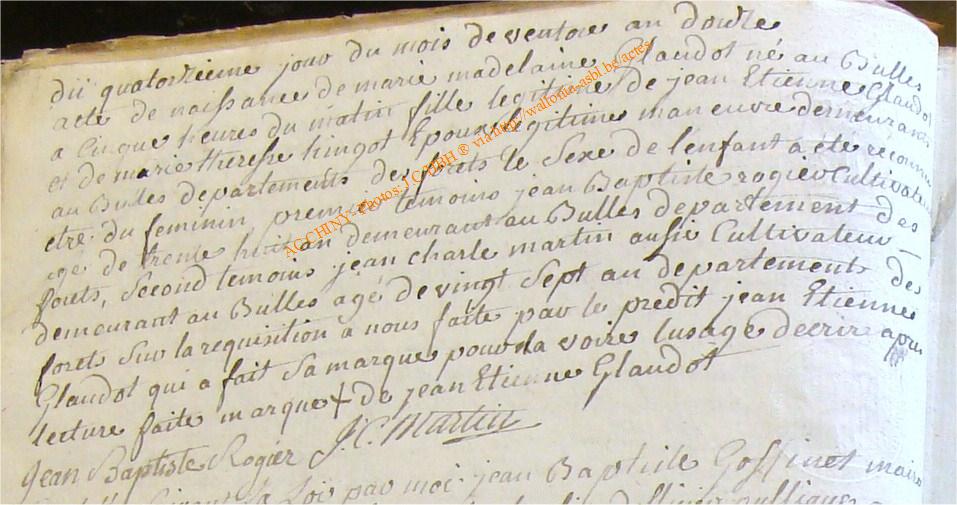 du quatorzieme jour du mois de ventose an douze
acte de naissance de marie madelaine Glaudot né au Bulles
a Cinque heures du matin fille legitime de jean Etienne Glaudot
et de marie therese hingot Epouse legitime maneuvre demeurants
au Bulles departements des forets le Sexe de lenfant a été reconnu
etre du feminin premier temoins jean Baptiste rogier Cultivateur
agé de trente huit an demeurant au Bulles departement des
forets, Second temoins jean charle martin aussi Cultivateur
demeurant au Bulles agé de vingt Sept an departements des
forets Sur la requisition a nous faite par le predit jean Etienne
Glaudot qui a fait Sa marque pour la voire lusage decrire apres
lecture faite marque + de jean Etienne Glaudot
Jean Baptiste Rogier J.C. Martin
Loi par moi jean Baptiste Goffinet maire
publiques
ACCHINY- Photos: J C DBH ® via http://wallonie-asbl.be/actes